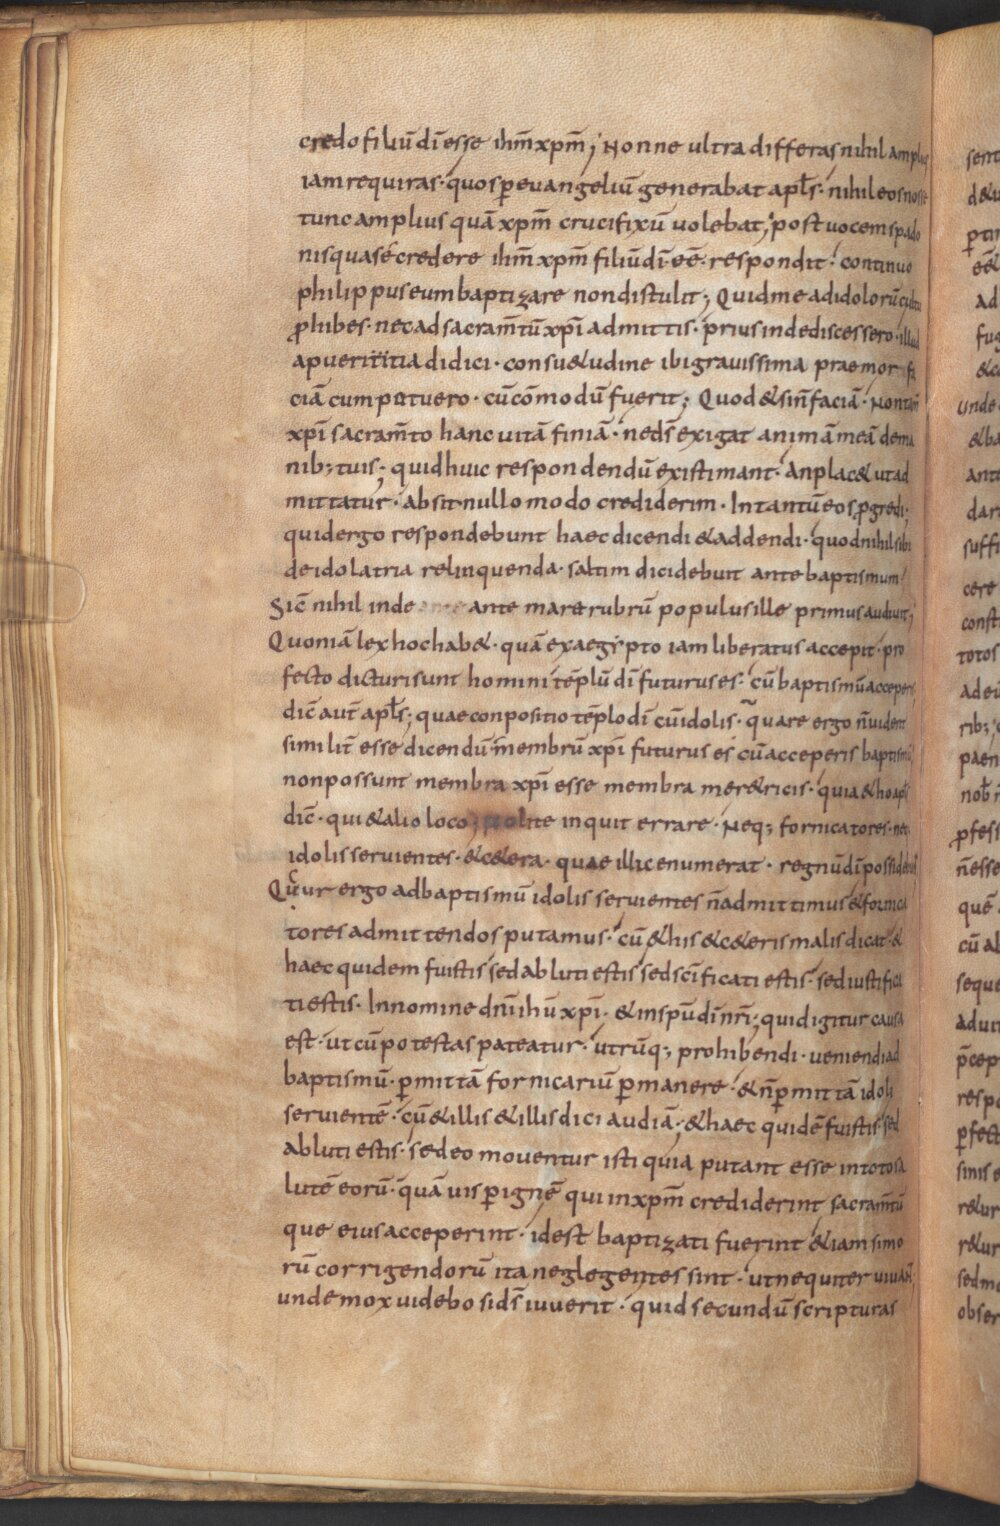 credo filiū dī esse ihm̄ xpm̄; Nonne ultra differas nihil amplius
iam requiras· quos p̄ euangeliū generabat apl̄s· nihil eos nosse
tunc amplius quā xpm̄ crucifixū uolebat; post uocem spado
nis qua se credere ihm̄ xpm̄ filiū dī· eē· respondit· continuo
philippus eum baptizare non distulit; Quid me ad idolorū cultū
ꝓhibes· nec ad sacram̄tū xpī admittis· prius inde discessero· illud
a pueritia didici· consu&udine ibi grauissima praemor·
ciā cum potuero· cū cōmodū fuerit; Quod & si n̄ faciā· Non tam̄
xpī sacram̄to hanc uitā finiā· ne d̄s exigat animā meā de ma
nib; tuis· quid huic respondendū existimant· An plac& ut ad
mittatur· absit nullo modo crediderim· In tantū eos ꝓgredi·
quid ergo respondebunt haec dicendi & addendi· quod nihil sibi
de idolatria relinquenda· saltim dici debuit ante baptismum
Sic̄ nihil inde ante mare rubrū populus ille primus audiuit;
Quoniā lex hoc hab&· quā ex aegypto iam liberatus accepit· pro
fecto dicturi sunt homini tēplū dī futurus es· cū baptismū acceperis
dic̄ aut̄ apl̄s; quae conpositio tēplo dī cū idolis· quare ergo n̄ uident
similit̄ esse dicendū membrū xpī futurus es cū acceperis baptismū
non possunt membra xpī esse membra mer&ricis· quia & hoc apl̄s
dic̄· qui & alio loco; nolite inquit errare· Neq; fornicatores· nec
idolis seruientes· & c&era· quae illic enumerat· regnū dī possidebunt
Qur ergo ad baptismū idolis seruientes n̄ admittimus & fornica
tores admittendos putamus· cū & his & c&eris malis dicat· &
haec quidem fuistis sed abluti estis sed scīficati estis· sed iustifica
ti estis· In nomine dn̄i ihū xpī· & in sp̄u dī nr̄i; quid igitur causa
est· ut cū potestas pateatur· utrūq; prohibendi· ueniendi ad
baptismū· p̄mittā fornicariū p̄manere· & n̄ p̄mittā idoli
seruientē· cū & illis & illis dici audiā· & haec quidē fuistis· sed
abluti estis· sed eo mouentur isti quia putant esse in tota sa
lutē eorū· quā uis p̄ ignē qui in xpm̄ crediderint sacram̄tū
que eius acceperint· id est baptizati fuerint &iam si mo
rū corrigendorū ita neglegentes sint· ut nequiter uiuant;
unde mox uidebo si d̄s iuuerit· quid secundū scripturas